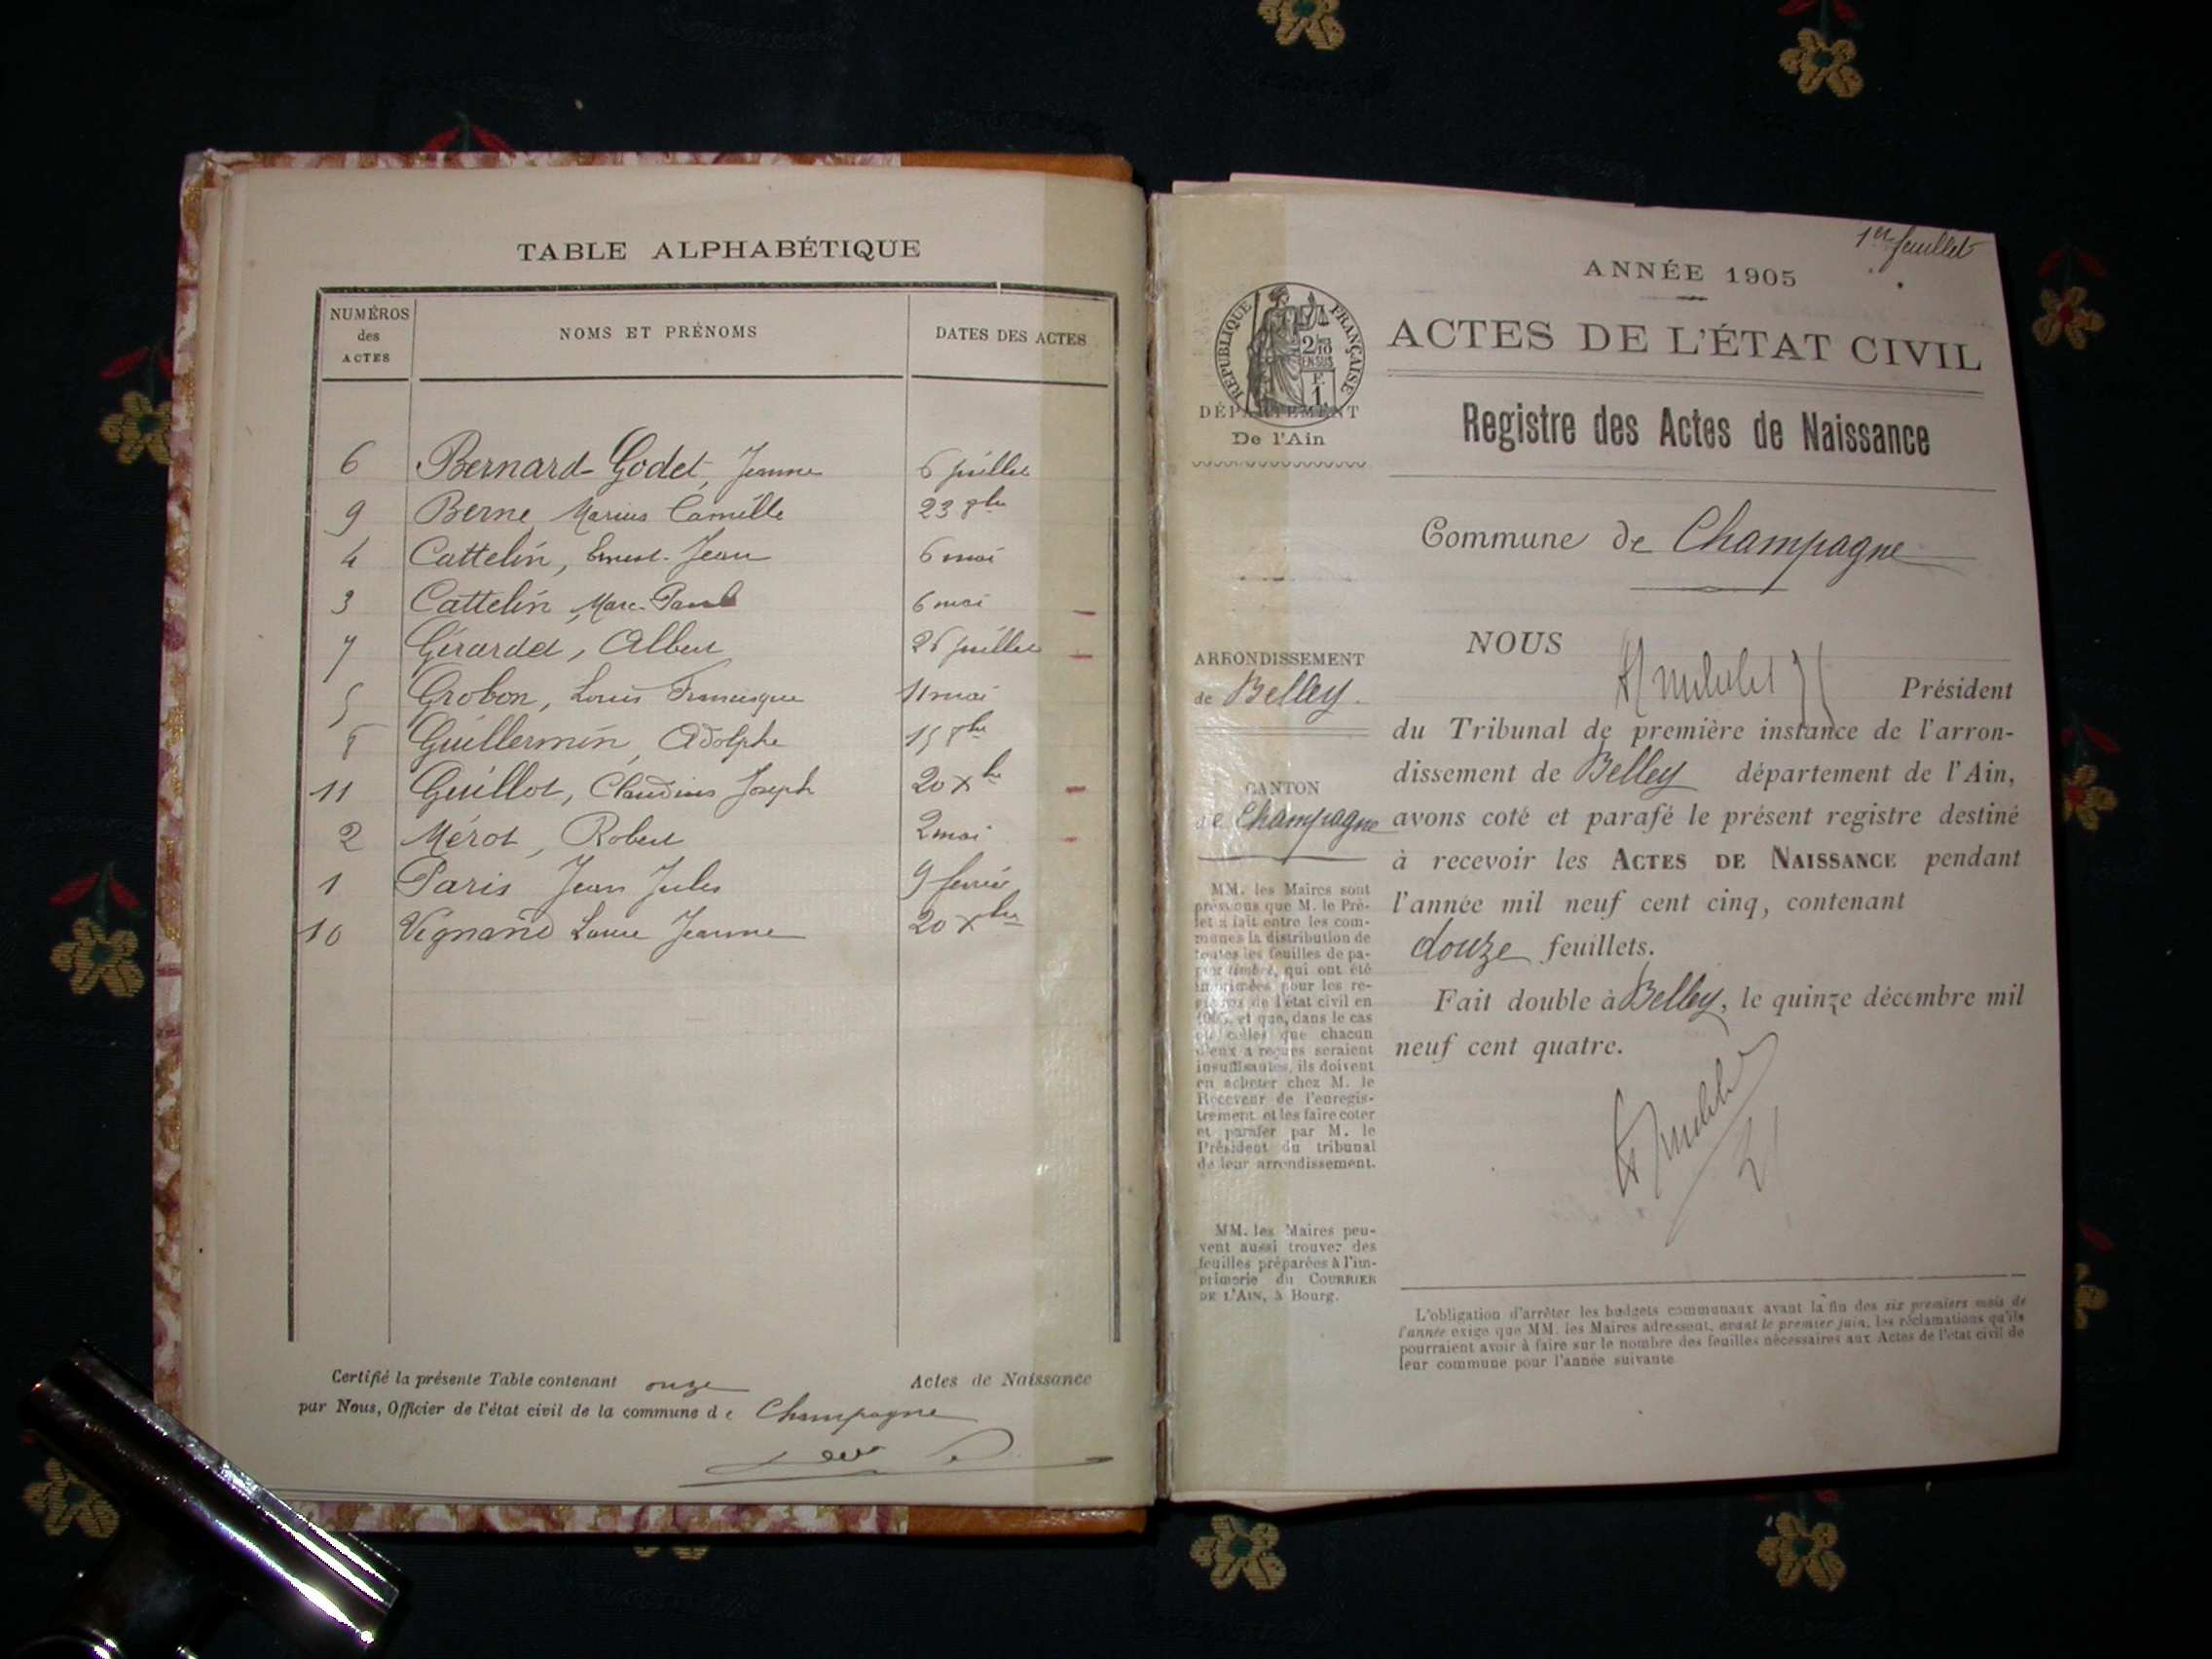 TABLE ALPHABÉTIQUE
NUMÉROS des ACTES
NOMS ET PRÉNOMS
DATES DES ACTES
6 Bernard-Godet, Jeanne 6 juillet
9 Berne Marius Camille 23 9bre
4 Cattelin, Ernest-Jean 6 mai
3 Cattelin, Marc-Paul 6 mai
7 Girardet, Albert 26 juillet
5 Grobon, Louis Francisque 11 mai
8 Guillermin, Adolphe 15 8bre
11 Guillot, Claudius Joseph 20 Xbre
2 Mérot, Robert 2 mai
1 Paris Jean Jules 9 février
10 Vignand Jeanne 20 Xbre
Certifié la présente Table contenant onze Actes de Naissance
par Nous, Officier de l'état civil de la commune de Champagne
1er feuillet
ANNÉE 1905
ACTES DE L'ÉTAT CIVIL
RÉPUBLIQUE FRANÇAISE
DÉPARTEMENT
De l'Ain
Registre des Actes de Naissance
Commune de Champagne
ARRONDISSEMENT
de Belley.
CANTON
de Champagne
MM. les Maires sont
prévenus que M. le Pré-
fet a fait entre les com-
munes la distribution de
toutes les feuilles de pa-
pier timbré, qui ont été
imprimées pour les re-
gistres de l'état civil en
1905, et que, dans le cas
où celles que chacun
d'eux a reçues seraient
insuffisantes, ils doivent
en acheter chez M. le
Receveur de l'enregis-
trement et les faire coter
et parafer par M. le
Président du tribunal
de leur arrondissement.
MM. les Maires peu-
vent aussi trouver des
feuilles préparées à l'im-
primerie du COURRIER
DE L'AIN, à Bourg.
NOUS
Président
du Tribunal de première instance de l'arron-
dissement de Belley département de l'Ain,
avons coté et parafé le présent registre destiné
à recevoir les ACTES DE NAISSANCE pendant
l'année mil neuf cent cinq, contenant
douze feuillets.
Fait double à Belley, le quinze décembre mil
neuf cent quatre.
L'obligation d'arrêter les budgets communaux avant la fin des six premiers mois de
l'année exige que MM. les Maires adressent, avant le premier juin, les réclamations qu'ils
pourraient avoir à faire sur le nombre des feuilles nécessaires aux Actes de l'état civil de
leur commune pour l'année suivante